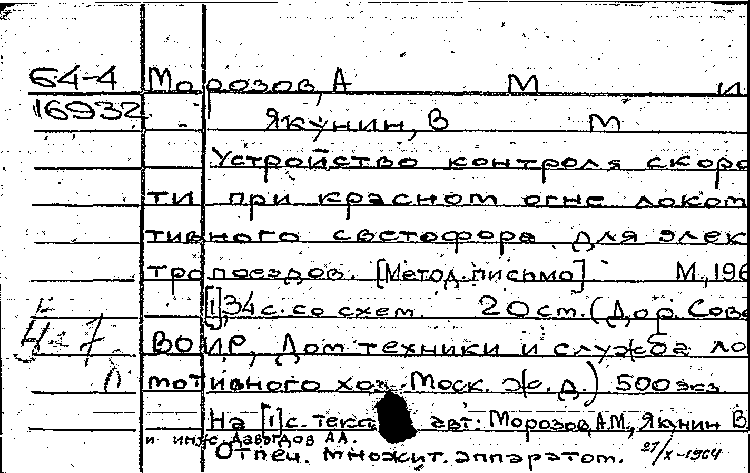 64-4 Морозов, А М и
16932 Якунин, В М
Устройство контроля скоро
ти при красном огне локом
тивного светофора для элек
тропоездов. [Метод. письмо] М, 196
[1], 34 с. со схем. 20 см. (Дор. Сове
ВОИР, Дом техники и служба ло
мотивного хоз. Моск. ж. д.) 500 экз
На [1] с. текста авт: Морозов А.М., Якунин В
и инж. Давыдов А.А.
Отпеч. множит. аппаратом. 27/X-1964